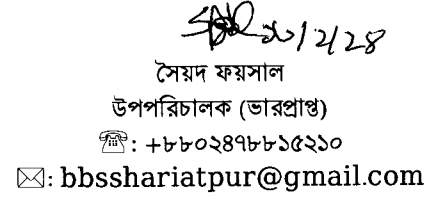 সৈয়দ ফয়সাল
উপপরিচালক (ভারপ্রাপ্ত)
☎: +৮৮০২৪৭৮৮১৫২১০
✉: bbsshariatpur@gmail.com